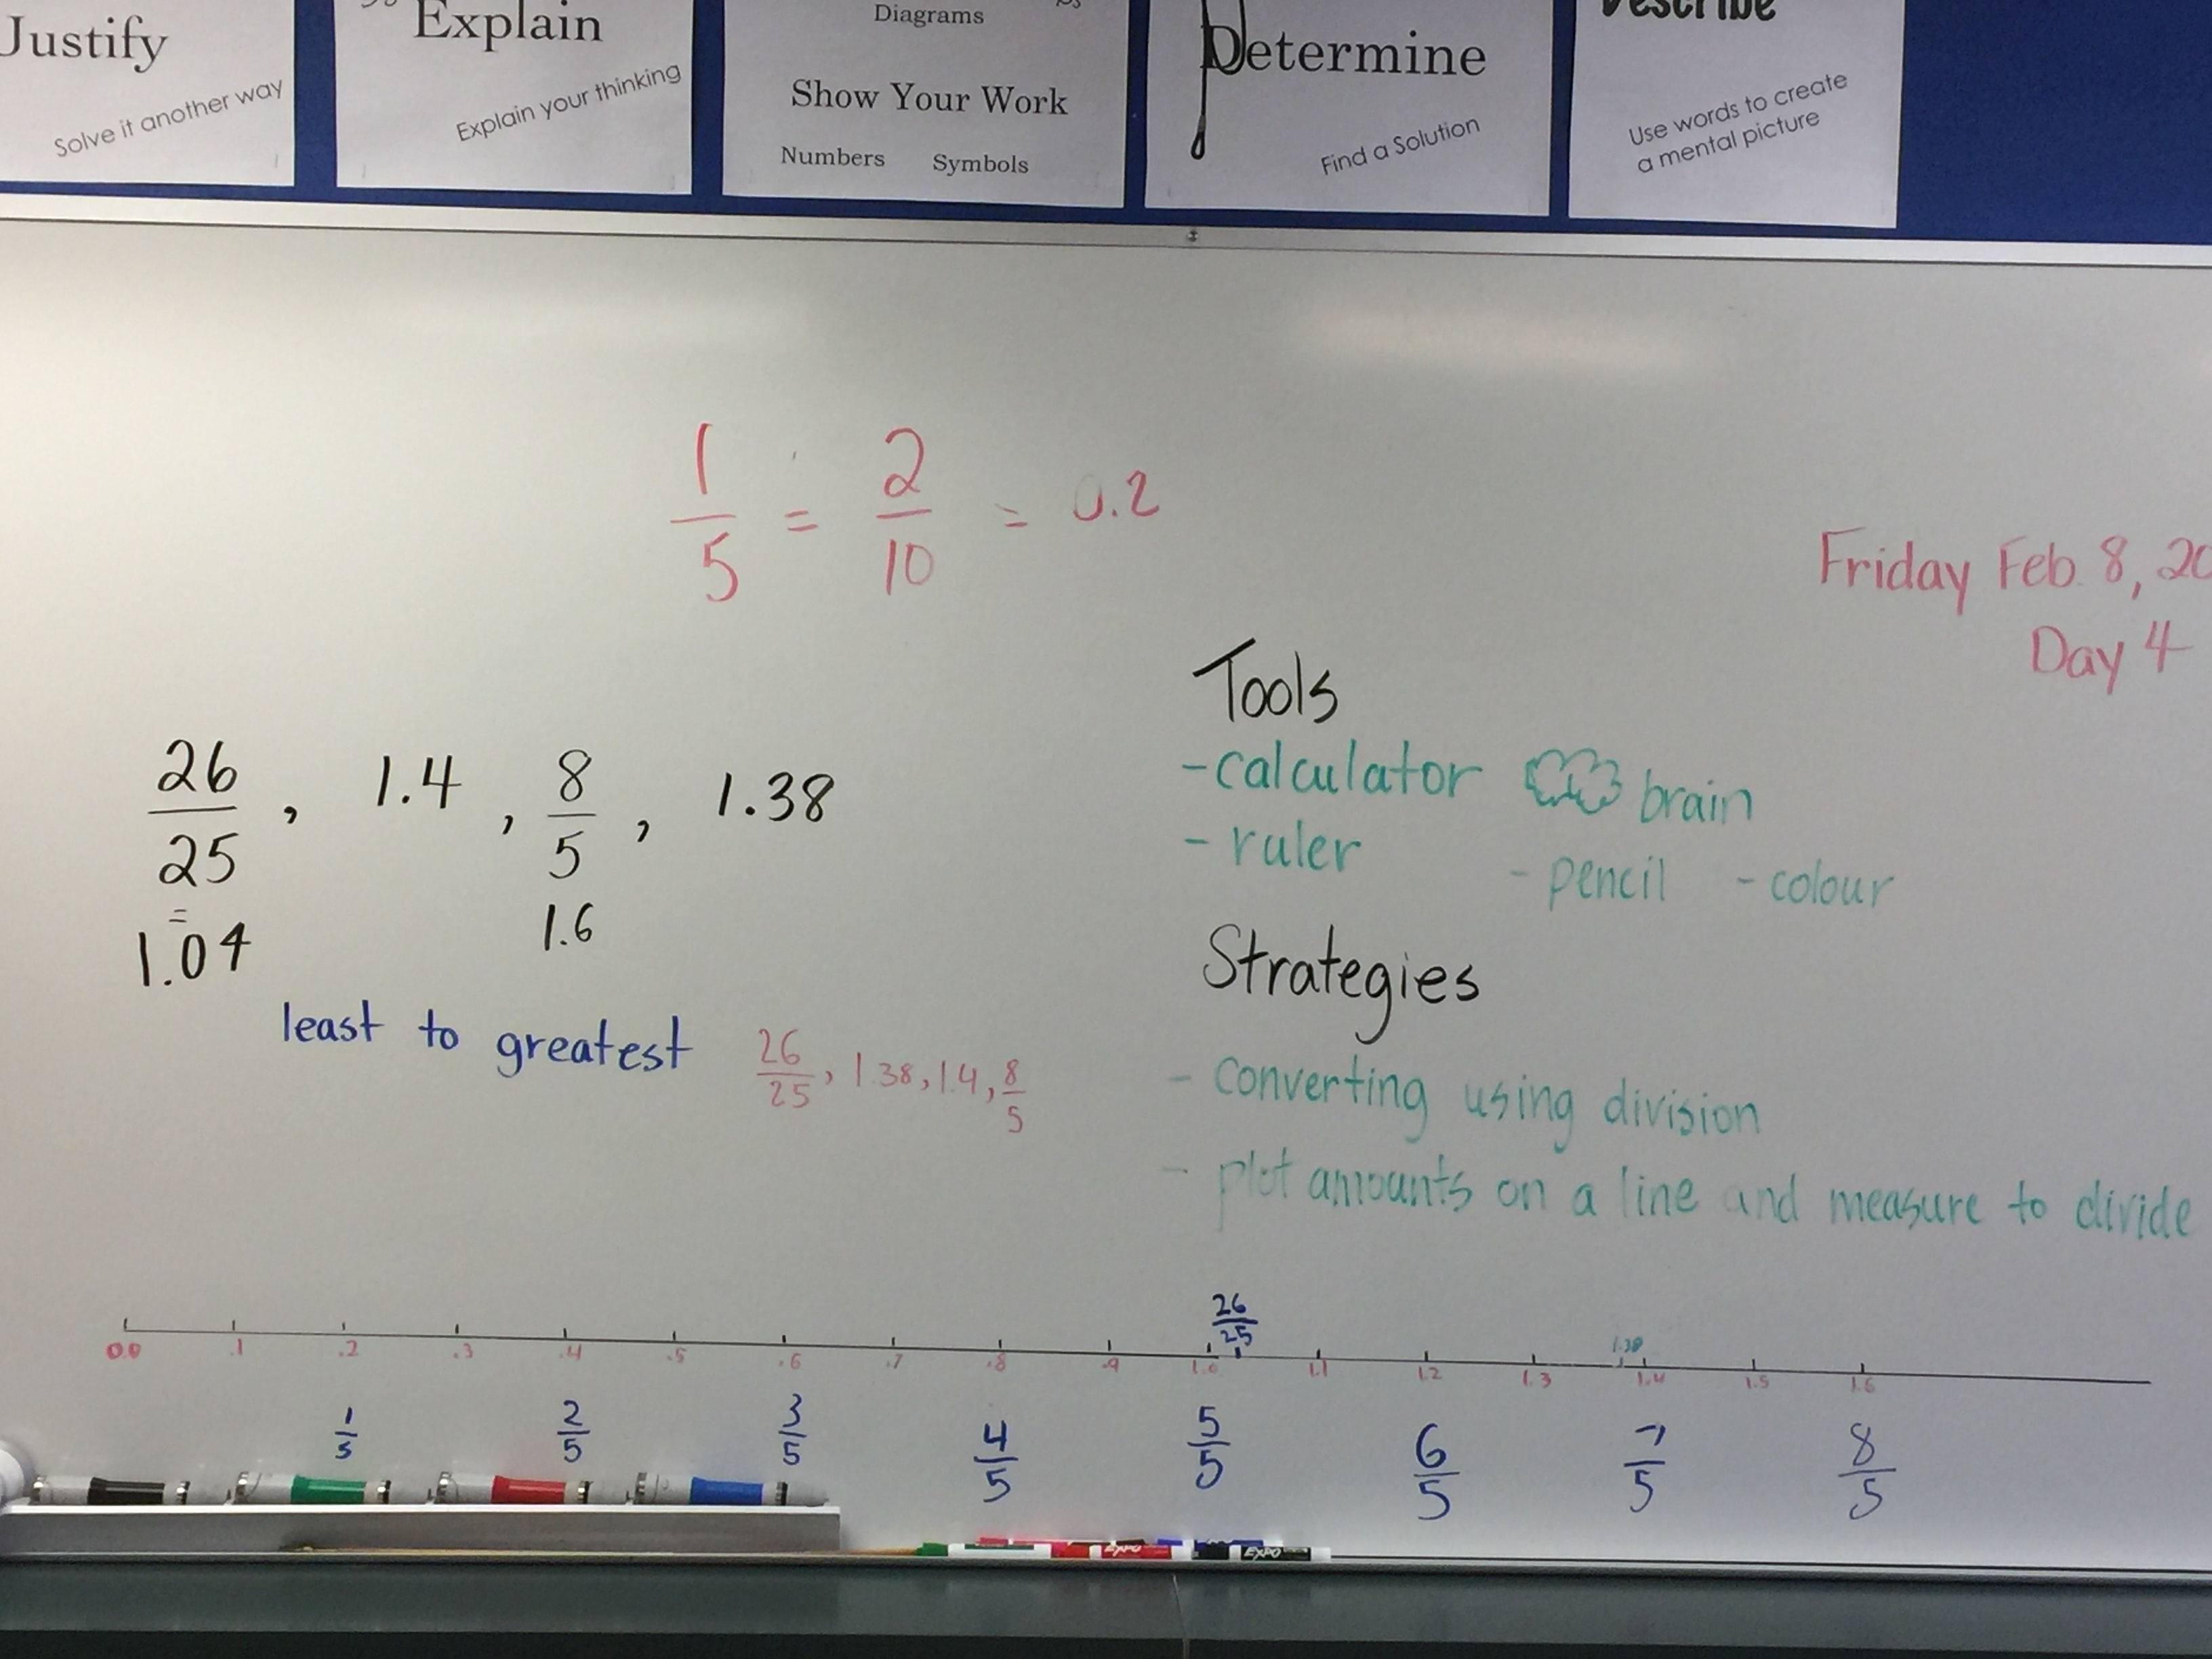 Justify
Solve it another way
Explain
Explain your thinking
Diagrams
Show Your Work
Numbers Symbols
Determine
Find a Solution
Describe
Use words to create
a mental picture
1/5 = 2/10 = 0.2
Friday Feb. 8, 20
Day 4
26/25, 1.4, 8/5, 1.38
= 1.04 1.6
least to greatest 26/25, 1.38, 1.4, 8/5
Tools
- calculator brain
- ruler - pencil - colour
Strategies
- converting using division
- plot amounts on a line and measure to divide
26/25 1.38
0.0 .1 .2 .3 .4 .5 .6 .7 .8 .9 1.0 1.1 1.2 1.3 1.4 1.5 1.6
1/5 2/5 3/5 4/5 5/5 6/5 7/5 8/5
EXPO EXPO